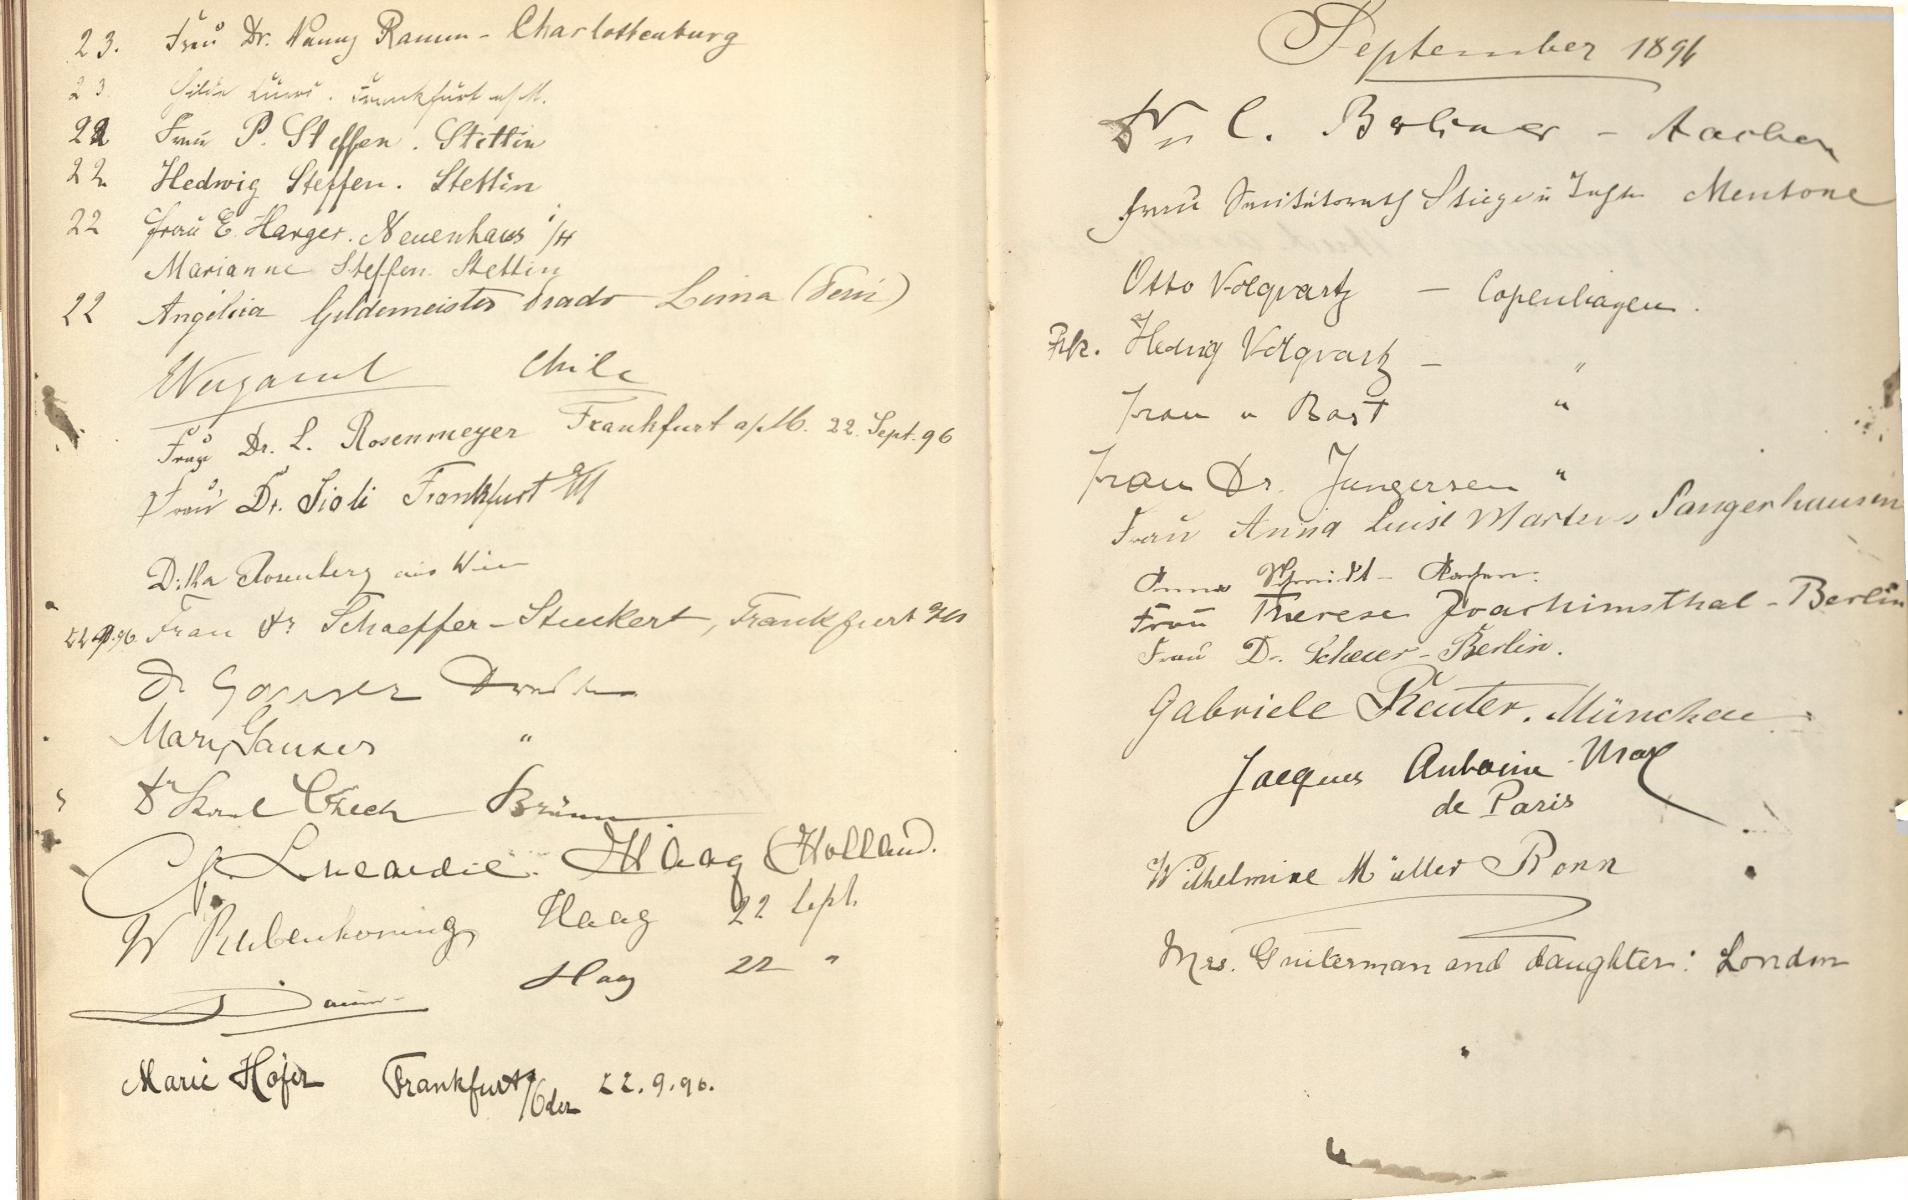 23. Frau Dr. Nanny Ramm - Charlottenburg
23. Frankfurt a/M.
22 Frau P. Steffen. Stettin
22 Hedwig Steffen. Stettin
22 Frau E. Harger. Neuenhaus i/H
Marianne Steffen Stettin
22 Angélica Gildemeister Prado Lima (Perú)
Weigand Chile
Frau Dr. L. Rosenmeyer Frankfurt a/M. 22. Sept. 96
Frau Dr. Sioli Frankfurt a/M
Rosenberg aus Wien
22.9.96. Frau Dr Schaeffer-Stuckert, Frankfurt a/M
Dr Ganser Dresden
Mary Ganser "
Dr Karl Chech Brünn
Lucardie. Haag (Holland.
W Rubenkoning Haag 22 Sept.
Haag 22 "
Marie Hofer Frankfurt a/Oder 22.9.96.
September 1896
Dr C. Berliner - Aachen
Frau Sanitätsrath Stiege u Mentone
Otto Volqvartz - Copenhagen.
Frk. Hedvig Volqvartz - "
Frau v Bast "
Frau Dr. Jungersen "
Frau Anna Luise Martens Sangerhausen
Anna Schmidt - Aachen.
Frau Therese Joachimsthal - Berlin
Frau Dr. Scheuer - Berlin.
Gabriele Reuter. München
Jacques Antoine Max
de Paris
Wilhelmine Müller Bonn
Mrs. Guiterman and daughter: London